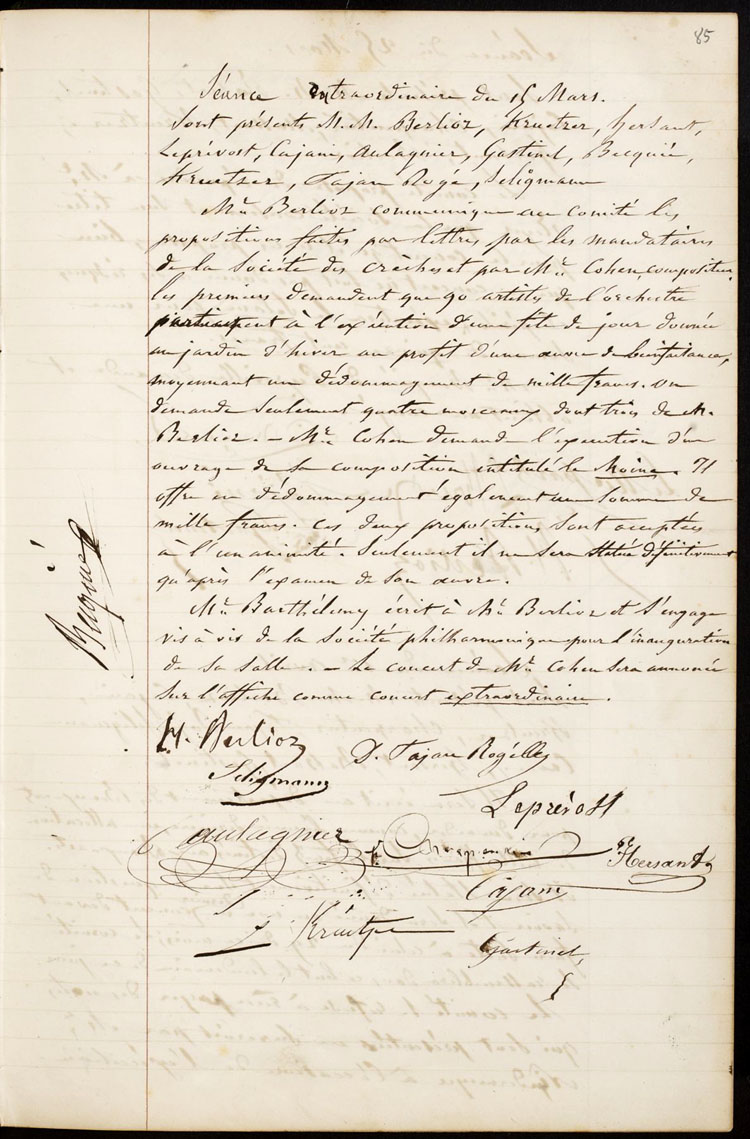 85
Séance extraordinaire du 15 Mars.
Sont présents M.M. Berlioz, Kruetzer, hersant,
Leprévost, Cajani, Aulagnier, Gastinel, Becquié,
Kruetzer, Tajan Rogé, Seligmann
Mr. Berlioz communique au Comité les
propositions faites par lettres par les mandataires
de la Société des Crèches et par Mr. Cohen, compositeur.
les premiers demandent que 90 artistes de l'orchestre
participent à l'exécution d'une fête de jour donnée
au jardin d'hiver au profit d'une œuvre de bienfaisance,
moyennant un dédommagement de mille francs. on
demande seulement quatre morceaux dont trois de M.
Berlioz. — Mr. Cohen demande l'exécution d'un
ouvrage de sa composition intitulé le Moine. Il
offre en dédommagement également une somme de
mille francs. ces deux propositions sont acceptées
à l'unanimité. Seulement il ne sera statué définitivement
qu'après l'examen de son œuvre.
Mr. Barthélemy écrit à Mr. Berlioz et s'engage
vis à vis de la Société philharmonique pour l'inauguration
de sa salle. — Le concert de Mr. Cohen sera annoncé
sur l'affiche comme concert extraordinaire.
Becquié
H. Berlioz
D. Tajan Rogé
Seligmann
Leprévost
aulagnier
Hersant
Cajani
Kruetzer
Gastinel